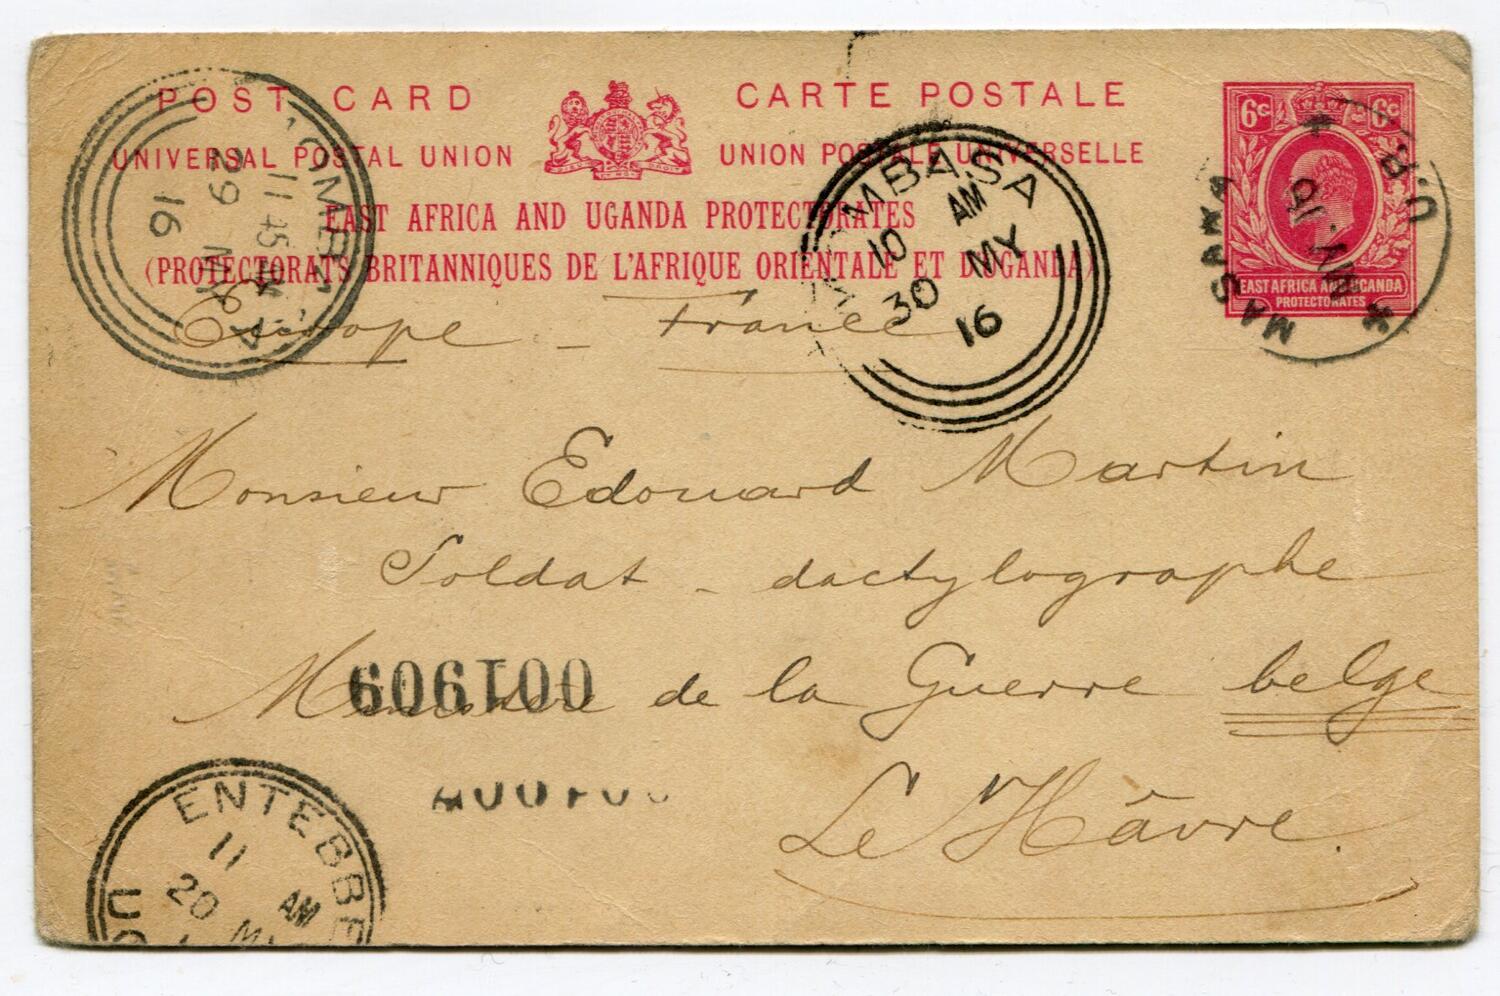 POST CARD CARTE POSTALE
UNIVERSAL POSTAL UNION UNION POSTALE UNIVERSELLE
EAST AFRICA AND UGANDA PROTECTORATES
(PROTECTORATS BRITANNIQUES DE L'AFRIQUE ORIENTALE ET D'OUGANDA)
6c 6c
EAST AFRICA AND UGANDA
PROTECTORATES
MASAKA
U.P.
MY 16
MOMBASA
11 45 AM
29 MY
16
MOMBASA
10 AM
30 MY
16
Europe - France
Monsieur Edouard Martin
Soldat - dactylographe
Ministère de la Guerre belge
001909
Le Hâvre.
ENTEBBE
11 AM
20 MY